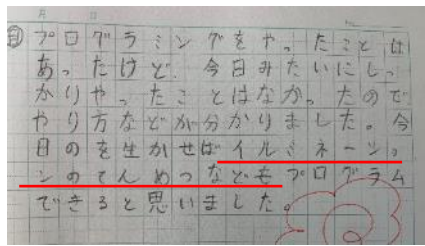 月 日
目 プログラミングをやったことは
あったけど、今日みたいにしっ
かりやったことはなかったので
やり方などが分かりました。今
日のを生かせばイルミネーショ
ンのてんめつなどもプログラム
できると思いました。